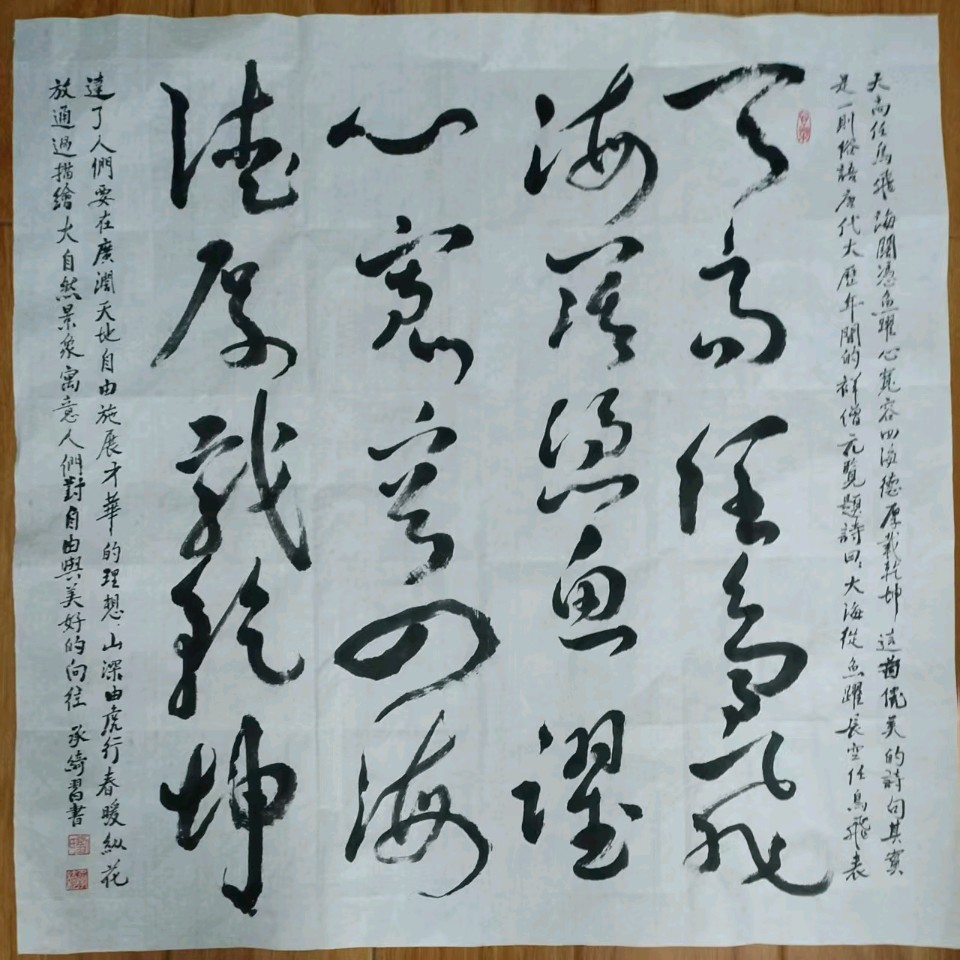 天高任鳥飛海闊憑魚躍心寬容四海德厚載乾坤 這首優美的詩句其實
是一則俗語唐代大歷年間的禅僧元覽題詩曰.大海從魚躍長空任鳥飛表
天高任鳥飛
海闊憑魚躍
心寬容四海
德厚載乾坤
達了人們要在廣濶天地自由施展才華的理想.山深由虎行春暖纵花
放通過描繪大自然景象寓意人們對自由與美好的向往 承綺習書